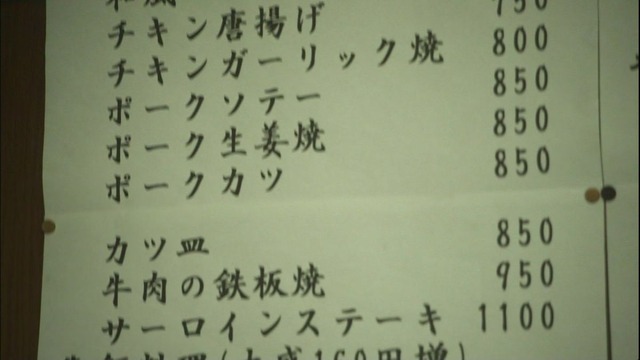 チキン唐揚げ 750
チキンガーリック焼 800
ポークソテー 850
ポーク生姜焼 850
ポークカツ 850
カツ皿 850
牛肉の鉄板焼 950
サーロインステーキ 1100
(大盛160円増)